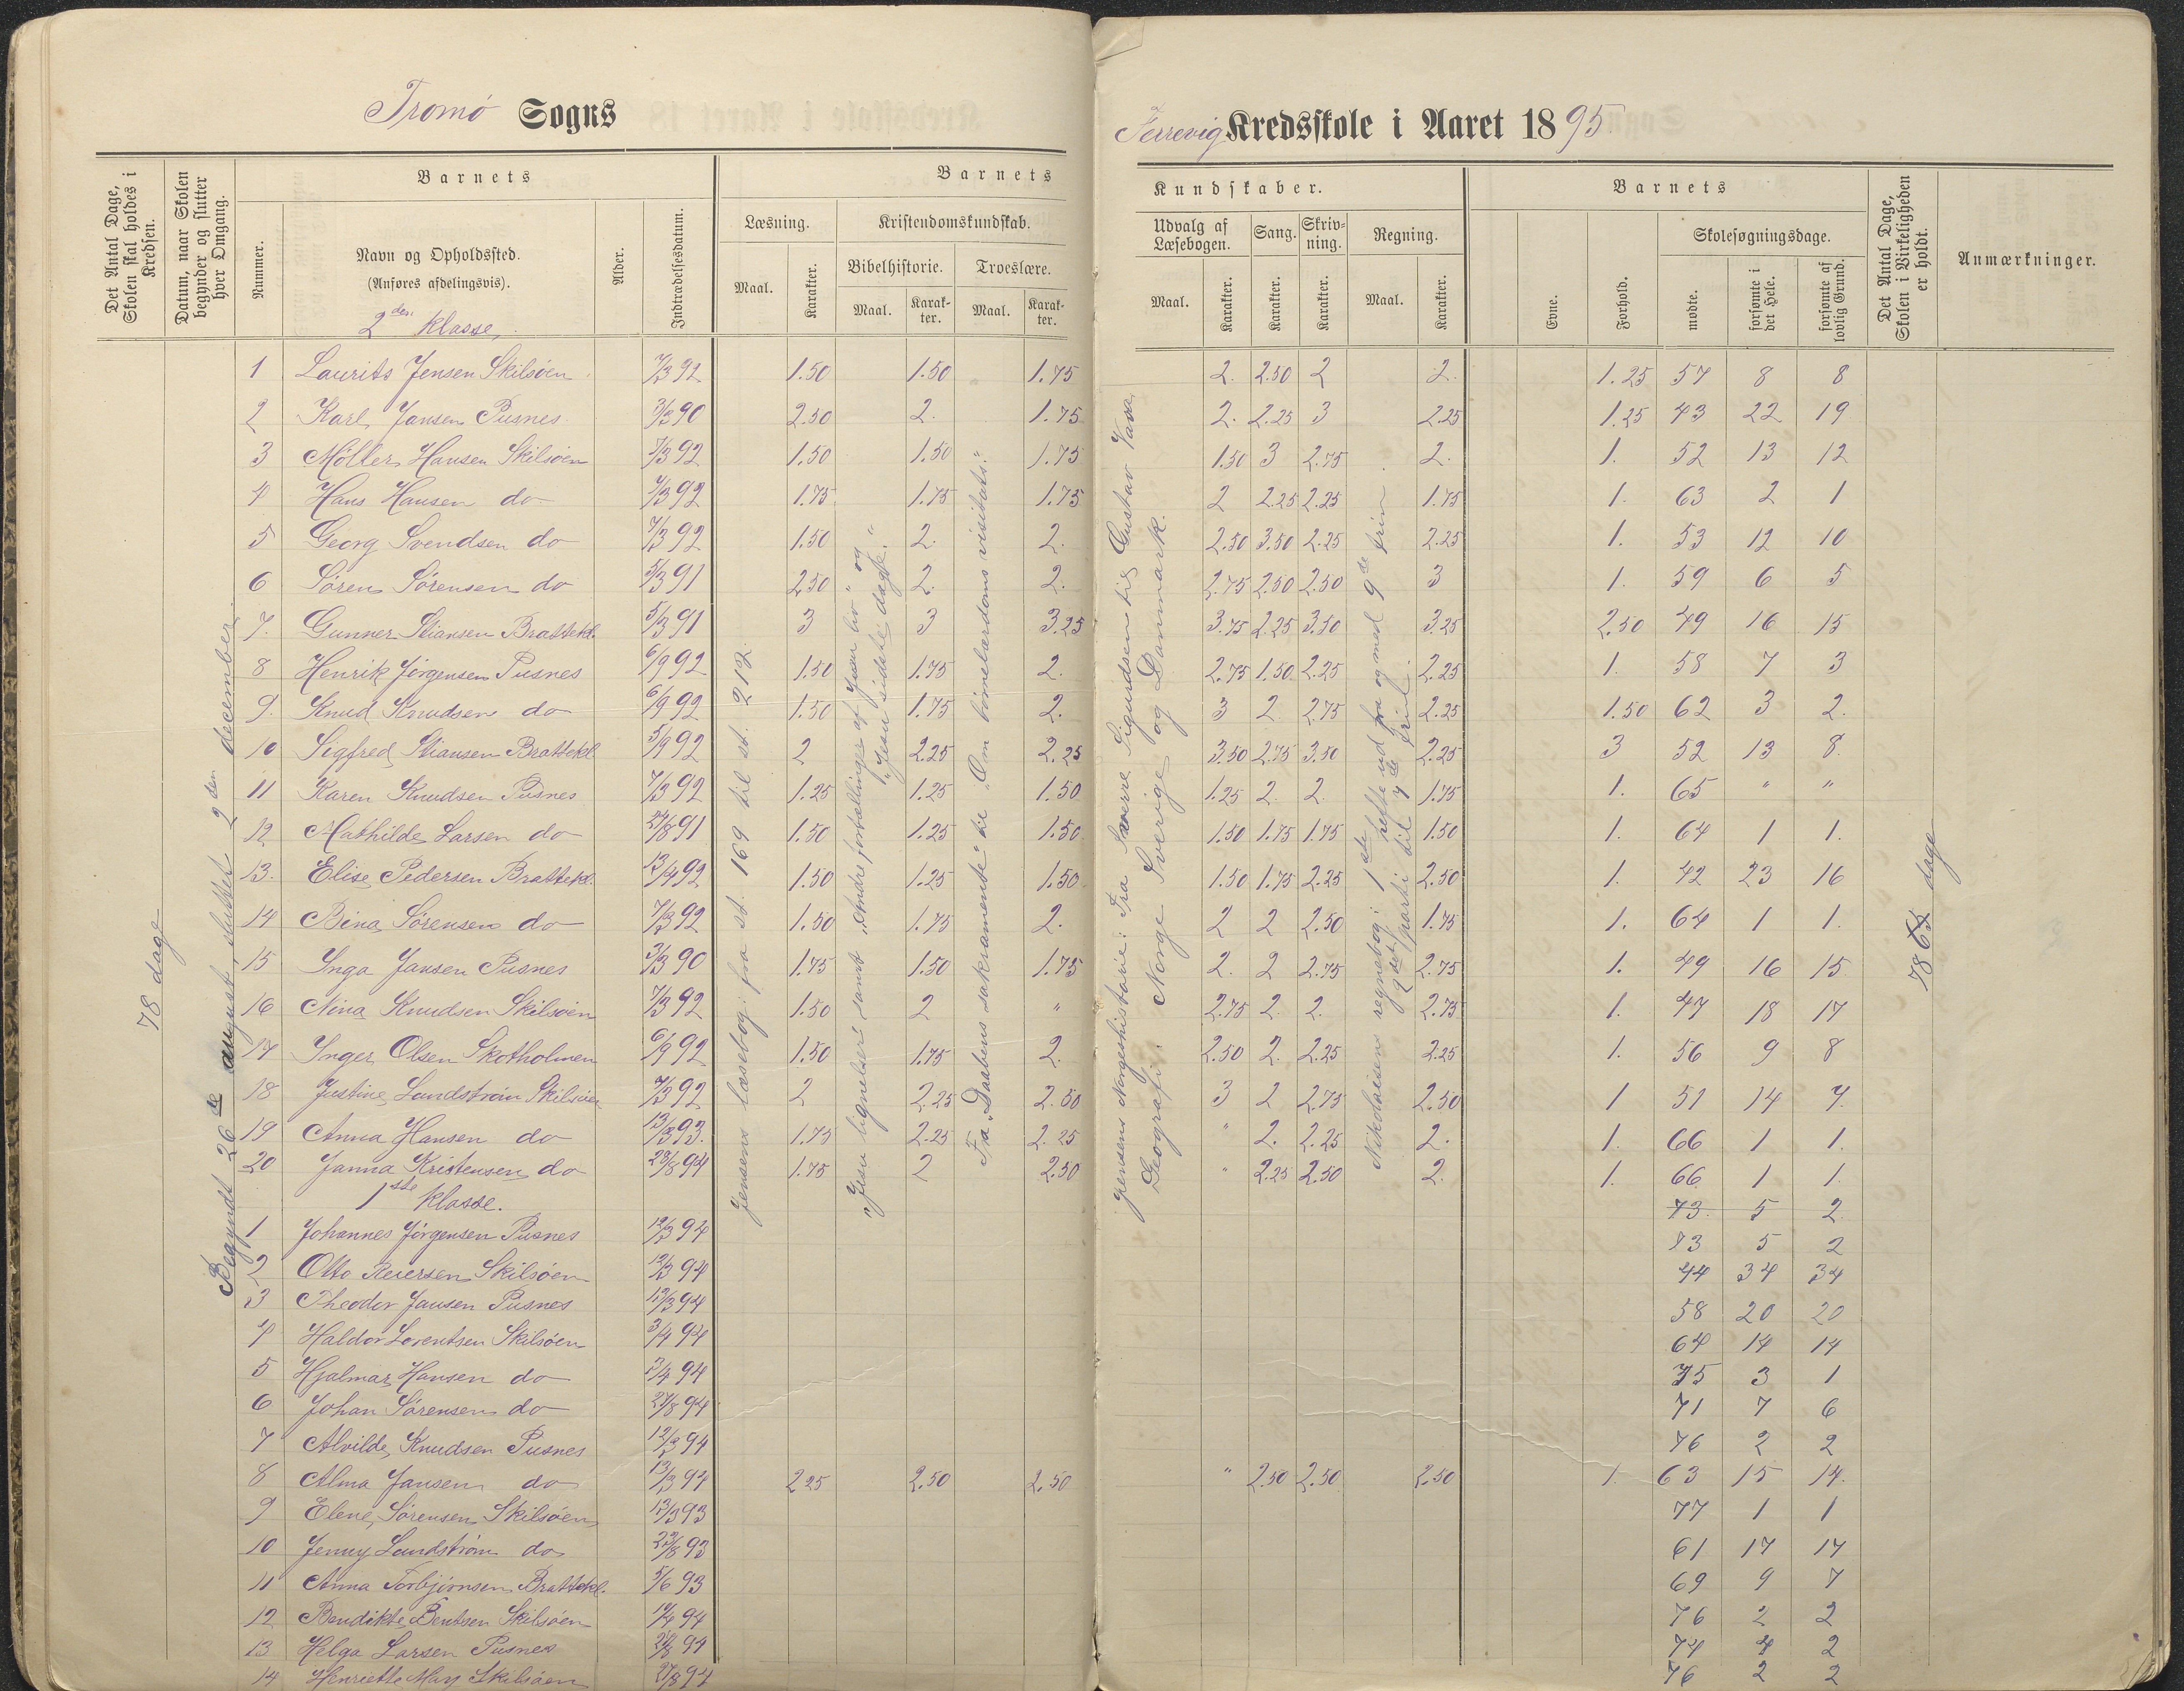 Tromö Sogns
Jerrevig Kredsskole i Aaret 1895
Det Antal Dage, Skolen skal holdes i Kredsen.
Datum, naar Skolen begynder og slutter hver Omgang.
Barnets
Nummer.
Navn og Opholdssted.
(Anføres afdelingsvis).
Alder.
Indtrædelsesdatum.
Barnets
Læsning.
Maal.
Karakter.
Kristendomskundskab.
Bibelhistorie.
Maal.
Karakter.
Troeslære.
Maal.
Karakter.
Kundskaber.
Udvalg af Læsebogen.
Maal.
Karakter.
Sang.
Karakter.
Skrivning.
Karakter.
Regning.
Maal.
Karakter.
Barnets
Evne.
Forhold.
Skolesøgningsdage.
mødte.
forsømte i det Hele.
forsømte af lovlig Grund.
Det Antal Dage, Skolen i Virkeligheden er holdt.
Anmærkninger.
78 dage
Begyndt 26de august, sluttet 2den december.
Jensens læsebog: fra st. 169 til st. 212.
"Jesu lignelser" samt "Andre fortællinger af Jesu liv" og
"Jesu sidste dage."
Fra "Daabens sakramente" til "Om börnelærdoms visitats."
Jensens Norgeshistorie: Fra Sverre Sigurdsen til Gustav Vasa.
Geografi: Norge Sverige og Danmark.
Nikolaisens regnebog: 1ste hefte ud fra og med 9de trin
2det parti til 7de trin.
78 65 dage
2den klasse.
1 Laurits Jensen Skilsöen 7/3 92 1.50 1.50 1.75 2. 2.50 2 2. 1.25 57 8 8
2 Karl Jansen Pusnes 3/3 90 2.50 2. 1.75 2. 2.25 3 2.25 1.25 43 22 19
3 Möller Hansen Skilsöen 7/3 92 1.50 1.50 1.75 1.50 3 2.75 2. 1. 52 13 12
4 Hans Hansen do 7/3 92 1.75 1.75 1.75 2 2.25 2.25 1.75 1. 63 2 1
5 Georg Svendsen do 7/3 92 1.50 2. 2. 2.50 3.50 2.25 2.25 1. 53 12 10
6 Sören Sörensen do 5/3 91 2.50 2. 2. 2.75 2.50 2.50 3 1. 59 6 5
7. Gunner Stiansen Brattekl. 5/3 91 3 3 3.25 3.75 2.25 3.50 3.25 2.50 49 16 15
8 Henrik Jörgensen Pusnes 6/9 92 1.50 1.75 2. 2.75 1.50 2.25 2.25 1. 58 7 3
9. Knud Knudsen do 6/9 92 1.50 1.75 2. 3 2 2.75 2.25 1.50 62 3 2.
10 Sigfred Stiansen Brattekl 5/9 92 2 2.25 2.25 3.50 2.75 3.50 2.25 3 52 13 8.
11 Karen Knudsen Pusnes 7/3 92 1.25 1.25 1.50 1.25 2. 2. 1.75 1. 65 " "
12 Mathilde Larsen do 27/8 91 1.50 1.25 1.50 1.50 1.75 1.75 1.50 1. 64 1 1.
13. Elise Pedersen Brattekl. 13/4 92 1.50 1.25 1.50 1.50 1.75 2.25 2.50 1. 42 23 16
14 Bina Sörensen do 7/3 92 1.50 1.75 2. 2 2 2.50 1.75 1. 64 1 1.
15 Inga Jansen Pusnes 3/3 90 1.75 1.50 1.75 2. 2 2.75 2.75 1. 49 16 15
16 Nina Knudsen Skilsöen 7/3 92 1.50 2 " 2.75 2 2. 2.75 1. 47 18 17
17 Inger Olsen Skotholmen 6/9 92 1.50 1.75 2. 2.50 2. 2.25 2.25 1. 56 9 8
18 Justine Landström Skilsöen 7/3 92 2 2.25 2.50 3 2 2.75 2.50 1 51 14 7.
19 Anna Hansen do 13/3 93. 1.75 2.25 2.25 " 2. 2.25 2. 1. 66 1 1.
20 Janna Kristensen do 28/8 94 1.75 2 2.50 " 2.25 2.50 2. 1. 66 1 1.
1ste klasse. 73 5 2
1 Johannes Jörgensen Pusnes 12/3 94 73 5 2
2 Otto Reiersen Skilsöen 12/3 94 44 34 34
3 Theodor Jansen Pusnes 12/3 94 58 20 20
4 Haldor Lorentsen Skilsöen 3/4 94 64 14 14
5 Hjalmar Hansen do 3/4 94 75 3 1
6 Johan Sörensen do 27/8 94 71 7 6
7 Alvilde Knudsen Pusnes 12/3 94 76 2 2
8 Alma Jansen do 13/3 94 2.25 2.50 2.50 " 2.50 2.50 2.50 1. 63 15 14.
9 Elene Sörensen Skilsöen 13/3 93 77 1 1
10 Jenny Landström do 23/8 93 61 17 17
11 Anna Torbjörnsen Brattekl. 5/6 93 69 9 7
12 Bendikte Bentsen Skilsöen 14/4 94 76 2 2
13 Helga Larsen Pusnes 27/8 94 74 4 2
14 Henriette May Skilsöen 27/8 94 76 2 2